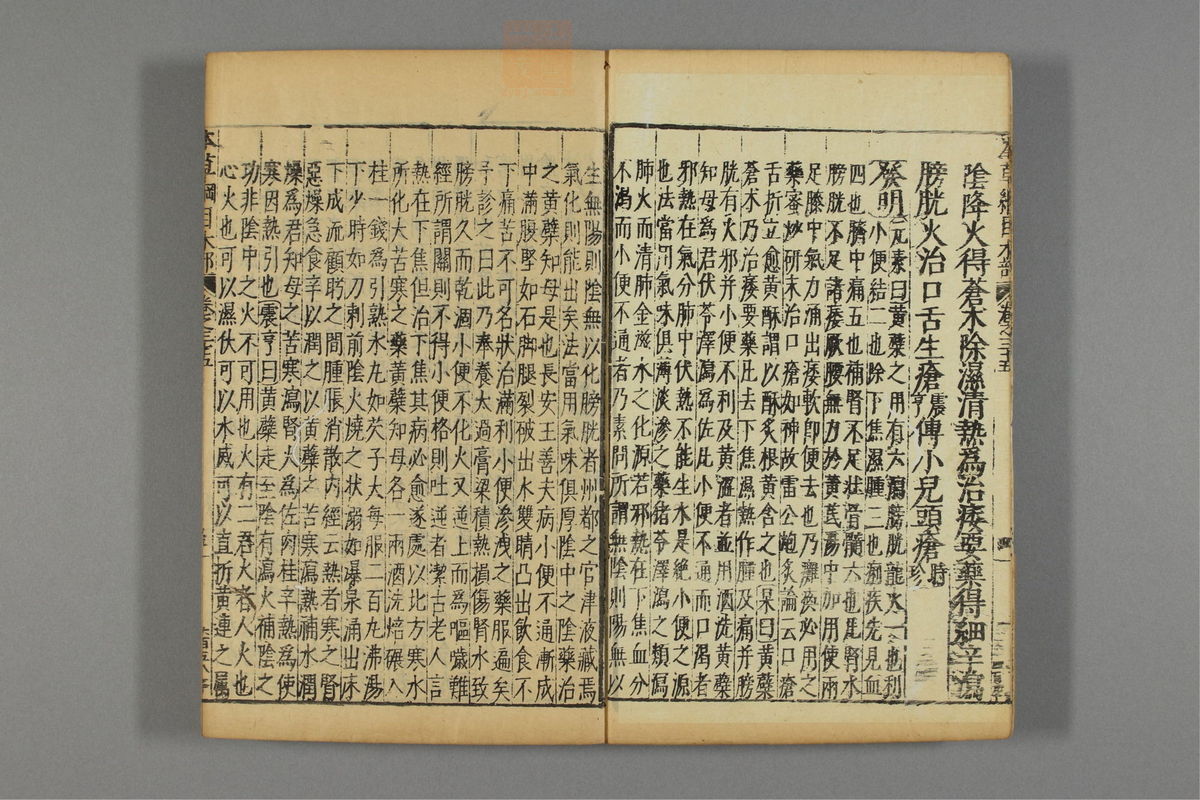 陰降火得蒼朮除濕清熱為治痿要藥得細辛瀉
膀胱火治口舌生瘡震亨傅小兒頭瘡時珍
發明元素曰黃蘗之用有六瀉膀胱龍火一也利
小便結二也除下焦濕腫三也痢疾先見血
四也臍中痛五也補腎不足壯骨髓六也凡腎水
膀胱不足諸痿厥腰無力於黃芪湯中加用使兩
足膝中氣力涌出痿軟即便去也乃癱瘓必用之
藥蜜炒研末治口瘡如神故雷公炮炙論云口瘡
舌折立愈黃酥謂以酥炙根黃含之也杲曰黃蘗
蒼朮乃治痿要藥凡去下焦濕熱作腫及痛并膀
胱有火邪并小便不利及黃澀者並用酒洗黃蘗
知母為君茯苓澤瀉為佐凡小便不通而口渴者
邪熱在氣分肺中伏熱不能生水是絕小便之源
也法當用氣味俱薄淡滲之藥猪苓澤瀉之類瀉
肺火而清肺金滋水之化源若邪熱在下焦血分
不渴而小便不通者乃素問所謂無陰則陽無以
生無陽則陰無以化膀胱者州都之官津液藏焉
氣化則能出矣法當用氣味俱厚陰中之陰藥治
之黃蘗知母是也長安王善夫病小便不通漸成
中滿腹堅如石脚腿裂破出水雙睛凸出飲食不
下痛苦不可名狀治滿利小便滲洩之藥服遍矣
予診之曰此乃奉養太過膏粱積熱損傷腎水致
膀胱久而乾涸小便不化火又逆上而為嘔噦難
經所謂關則不得小便格則吐逆者潔古老人言
熱在下焦但治下焦其病必愈遂處以比方寒水
所化大苦寒之藥黃蘗知母各一兩酒洗焙碾入
桂一錢為引熟水丸如芡子大每服二百丸沸湯
下少時如刀刺前陰火燒之狀溺如瀑泉涌出床
下成流顧盻之間腫脹消散内經云熱者寒之腎
惡燥急食辛以潤之以黃蘗之苦寒瀉熱補水潤
燥為君知母之苦寒瀉腎火為佐肉桂辛熱為使
寒因熱引也震亨曰黃蘗走至陰有瀉火補陰之
功非陰中之火不可用也火有二君火者人火也
心火也可以濕伏可以水滅可以直折黃連之屬
本草綱目木部 卷之三十五